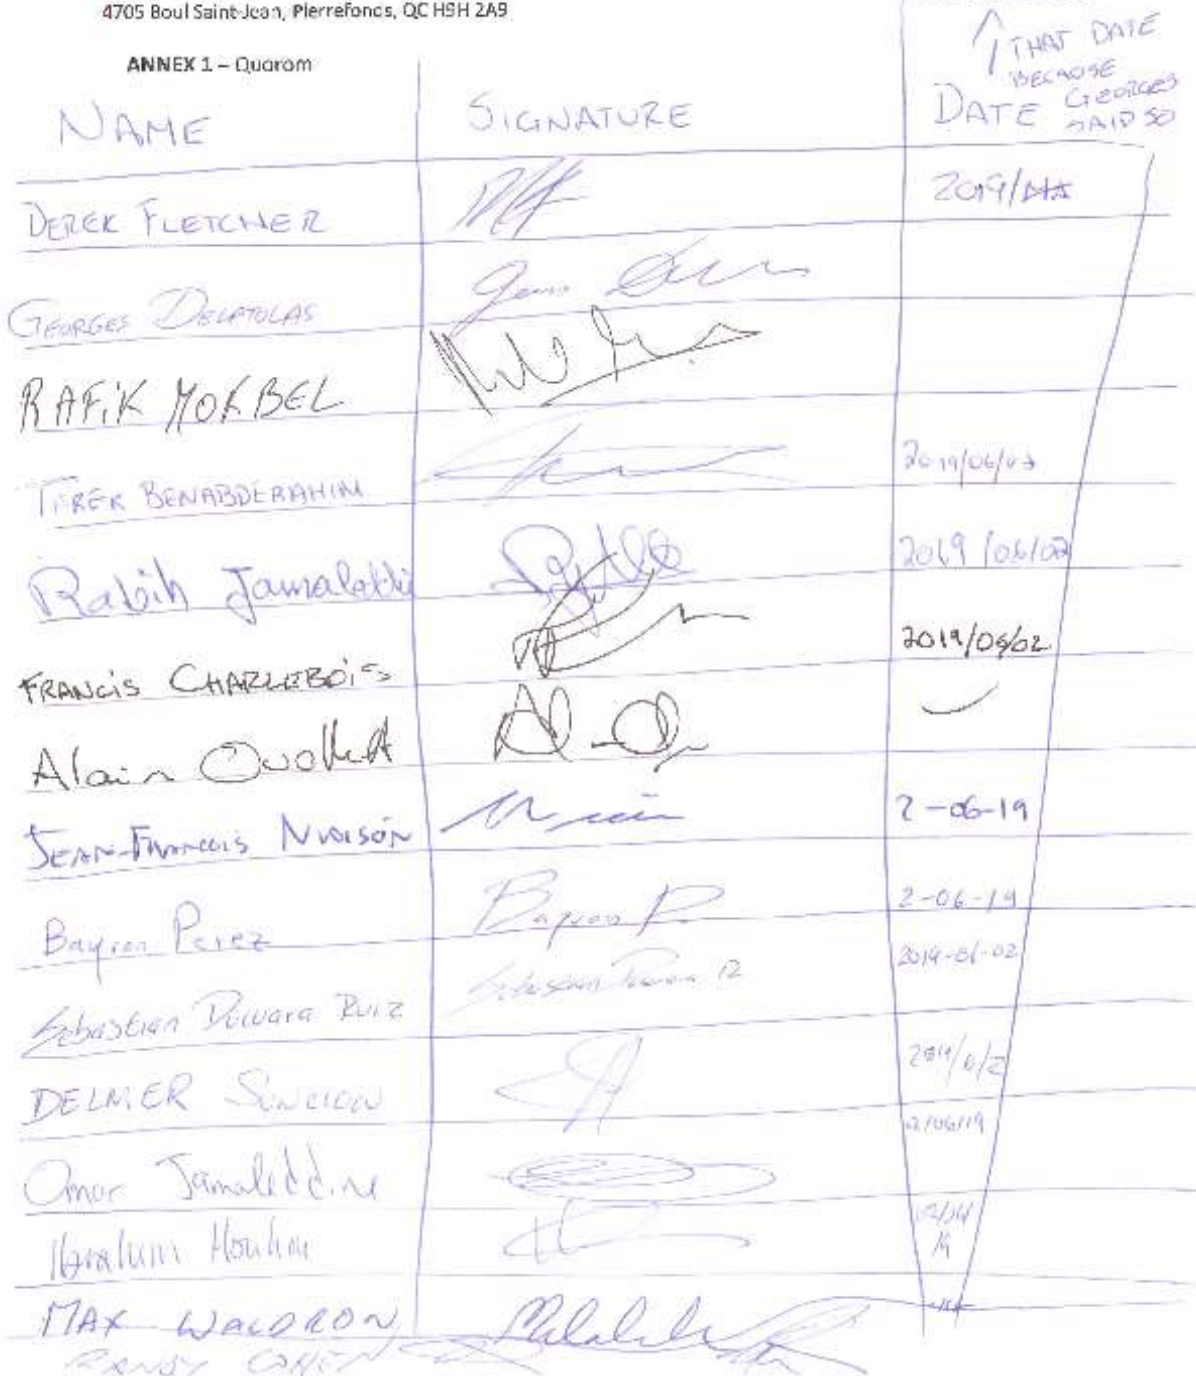 4705 Boul Saint-Jean, Pierrefonds, QC H9H 2A9
ANNEX 1 – Quorom
↑ THAT DATE
BECAUSE
GEORGES
SAID SO
NAME SIGNATURE DATE
DEREK FLETCHER 2019/
GEORGES DELATOLAS
RAFIK MOKBEL
TAREK BENABDERAHIM 2019/06/02
Rabih Jamaleddi 2019/06/02
FRANCIS CHARLEBOIS 2019/06/02
Alain Ouellet
JEAN-FRANCOIS 2-06-19
Bayron Perez Bayron P 2-06-19
Sebastian Ruiz Sebastian R 2019-06-02
DELMER SUNCION 2019/6/2
Omar Jamaleddine 2/06/19
Ibrahim 02/06/19
MAX WALDRON
RANDY COHEN